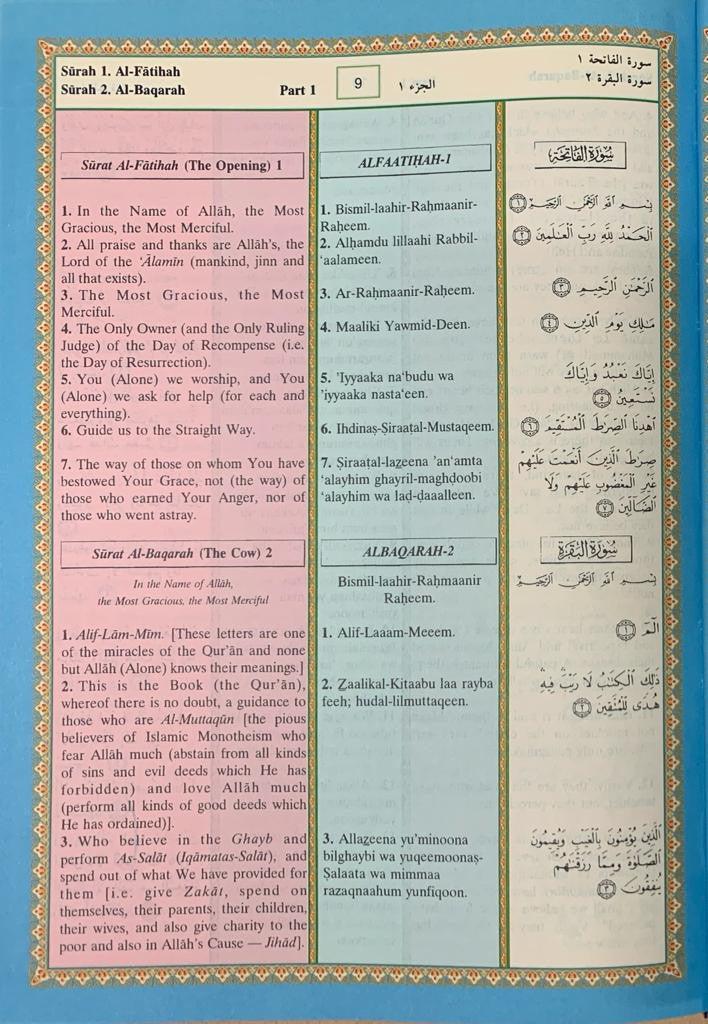 Sūrah 1. Al-Fātihah
Sūrah 2. Al-Baqarah
Part 1
9
الجزء ١
سورة الفاتحة ١
سورة البقرة ٢
Sūrat Al-Fātihah (The Opening) 1
1. In the Name of Allāh, the Most
Gracious, the Most Merciful.
2. All praise and thanks are Allāh's, the
Lord of the 'Ālamīn (mankind, jinn and
all that exists).
3. The Most Gracious, the Most
Merciful.
4. The Only Owner (and the Only Ruling
Judge) of the Day of Recompense (i.e.
the Day of Resurrection).
5. You (Alone) we worship, and You
(Alone) we ask for help (for each and
everything).
6. Guide us to the Straight Way.
7. The way of those on whom You have
bestowed Your Grace, not (the way) of
those who earned Your Anger, nor of
those who went astray.
Sūrat Al-Baqarah (The Cow) 2
In the Name of Allāh,
the Most Gracious, the Most Merciful
1. Alif-Lām-Mīm. [These letters are one
of the miracles of the Qur'ān and none
but Allāh (Alone) knows their meanings.]
2. This is the Book (the Qur'ān),
whereof there is no doubt, a guidance to
those who are Al-Muttaqūn [the pious
believers of Islamic Monotheism who
fear Allāh much (abstain from all kinds
of sins and evil deeds which He has
forbidden) and love Allāh much
(perform all kinds of good deeds which
He has ordained)].
3. Who believe in the Ghayb and
perform As-Salāt (Iqāmatas-Salāt), and
spend out of what We have provided for
them [i.e. give Zakāt, spend on
themselves, their parents, their children,
their wives, and also give charity to the
poor and also in Allāh's Cause — Jihād].
ALFAATIḤAH-1
1. Bismil-laahir-Raḥmaanir-
Raheem.
2. Alḥamdu lillaahi Rabbil-
'aalameen.
3. Ar-Raḥmaanir-Raḥeem.
4. Maaliki Yawmid-Deen.
5. 'Iyyaaka na'budu wa
'iyyaaka nasta'een.
6. Ihdinaṣ-Ṣiraaṭal-Mustaqeem.
7. Ṣiraaṭal-lazeena 'an'amta
'alayhim ghayril-maghḍoobi
'alayhim wa laḍ-ḍaaalleen.
ALBAQARAH-2
Bismil-laahir-Raḥmaanir
Raḥeem.
1. Alif-Laaam-Meeem.
2. Ẓaalikal-Kitaabu laa rayba
feeh; hudal-lilmuttaqeen.
3. Allaẓeena yu'minoona
bilghaybi wa yuqeemoonaṣ-
Ṣalaata wa mimmaa
razaqnaahum yunfiqoon.
سُورَةُ الفَاتِحَةِ
بِسْمِ ٱللَّهِ ٱلرَّحْمَٰنِ ٱلرَّحِيمِ ١
ٱلْحَمْدُ لِلَّهِ رَبِّ ٱلْعَٰلَمِينَ ٢
ٱلرَّحْمَٰنِ ٱلرَّحِيمِ ٣
مَٰلِكِ يَوْمِ ٱلدِّينِ ٤
إِيَّاكَ نَعْبُدُ وَإِيَّاكَ
نَسْتَعِينُ ٥
ٱهْدِنَا ٱلصِّرَٰطَ ٱلْمُسْتَقِيمَ ٦
صِرَٰطَ ٱلَّذِينَ أَنْعَمْتَ عَلَيْهِمْ
غَيْرِ ٱلْمَغْضُوبِ عَلَيْهِمْ وَلَا
ٱلضَّآلِّينَ ٧
سُورَةُ البَقَرَةِ
بِسْمِ ٱللَّهِ ٱلرَّحْمَٰنِ ٱلرَّحِيمِ
الٓمٓ ١
ذَٰلِكَ ٱلْكِتَٰبُ لَا رَيْبَ ۛ فِيهِ ۛ
هُدًى لِّلْمُتَّقِينَ ٢
ٱلَّذِينَ يُؤْمِنُونَ بِٱلْغَيْبِ وَيُقِيمُونَ
ٱلصَّلَوٰةَ وَمِمَّا رَزَقْنَٰهُمْ
يُنفِقُونَ ٣